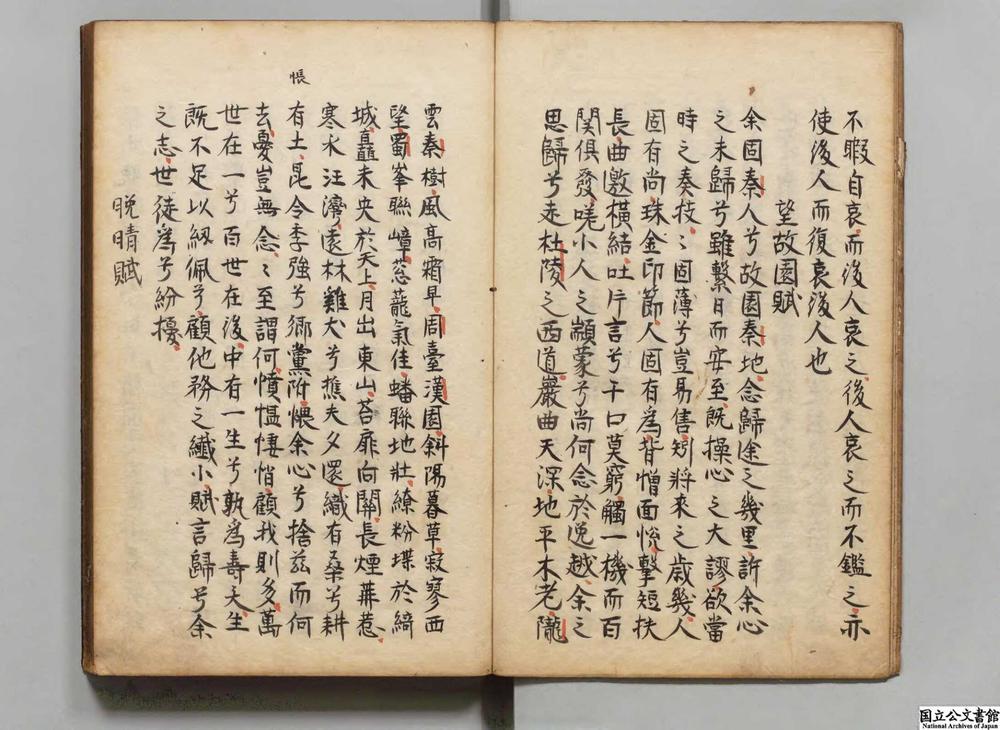 不暇自哀而後人哀之後人哀之而不鑑之亦
使後人而復哀後人也
望故園賦
余固秦人兮故園秦地念歸途之幾里訴余心
之未歸兮雖繫日而安至既操心之大謬欲當
時之奏技〻固薄兮豈易售矧將來之歲幾人
固有尚珠金印節人固有為背憎面悅擊短扶
長曲邀橫結吐片言兮千口莫窮觸一機而百
関俱發嗟小人之顓蒙兮尚何念於逸越余之
思歸兮走杜陵之西道巖曲天深地平木老隴
雲秦樹風高霜早周臺漢園斜陽暮草寂寥西
望蜀峯聯嶂葱蘢氣佳蟠聯地壯繚粉堞於綺
城矗未央於天上月出東山苔扉向關長煙苒惹
寒水注灣遠林雞犬兮樵夫夕還織有桑兮耕
有土昆令季強兮鄉黨附悵余心兮捨茲而何
去憂豈無念〻至謂何憤愠悽悄顧我則多萬
世在一兮百世在後中有一生兮孰為壽夭生
既不足以紉佩兮顧他務之纖小賦言歸兮余
之志世徒為兮紛擾
晚晴賦
悵
国立公文書館
National Archives of Japan